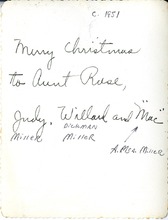 c. 1951
Merry Christmas
to Aunt Rose,
Judy, Willard and "Mac"
DILLMAN
MILLER MILLER
A. McA. Miller